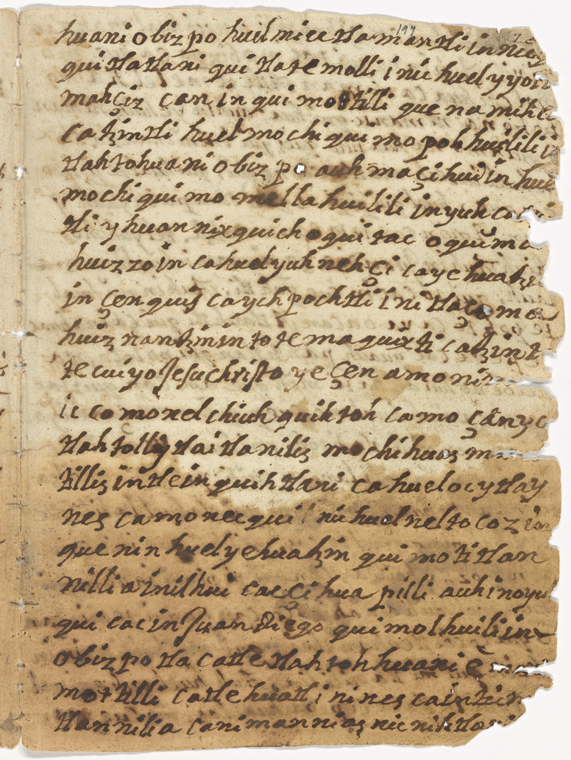 huani obizpo huel miec tlamantli inic
qui tlatlani qui tlatemolli inic huel yyol
mahçiz can in qui mottilli que namihca
catzintli huel mochi qui mo pohhuilili i
tlahtohuani obizpo auh maçihui in huel
mochi qui mo mella huilili in yuh ca
tli yhuan nixquich oquitac oquima
huizzo in ca huel yuh neh çi ca yehuatz
in çen quis ca ychpochtli in i tlaçoma
huiz nantzin in to temaquixti catzin t
tecuiyo Jesuchristo ye çen amo niz
ic co monel chiuh quihtoh ca mo çan yc
tlahtolly tlaitlanilis mochihuas
tillis in tlein quihtlani ca huel oc ytlay
nes ca monequi inic huel neltocoz in
que nin huel yehuatzin qui motitlan
nillia inilhui cac çihua pilli auh in oyu
qui cac in Juan diego quimolhuili in
obizpo tlacatle tlahtohhuanie
mottilli catle huatl i nines ca in tic
tlannilia ca niman nias nic nihtla